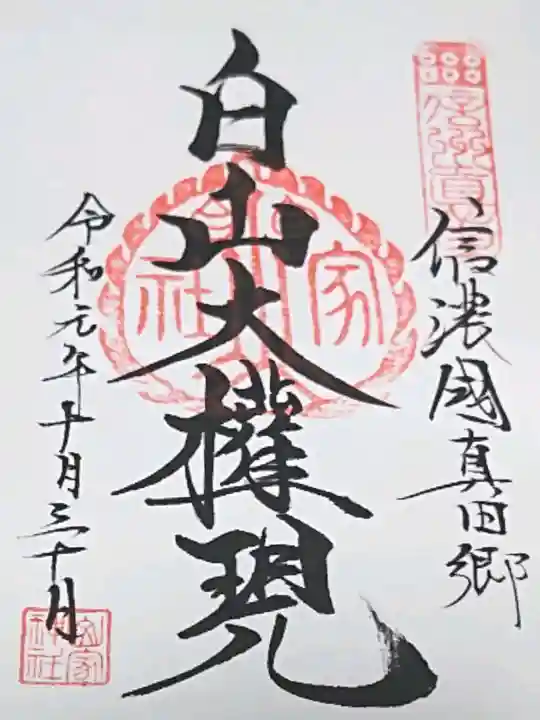 信濃國真田郷
白山大權現
令和元年十月三十日
山家神社